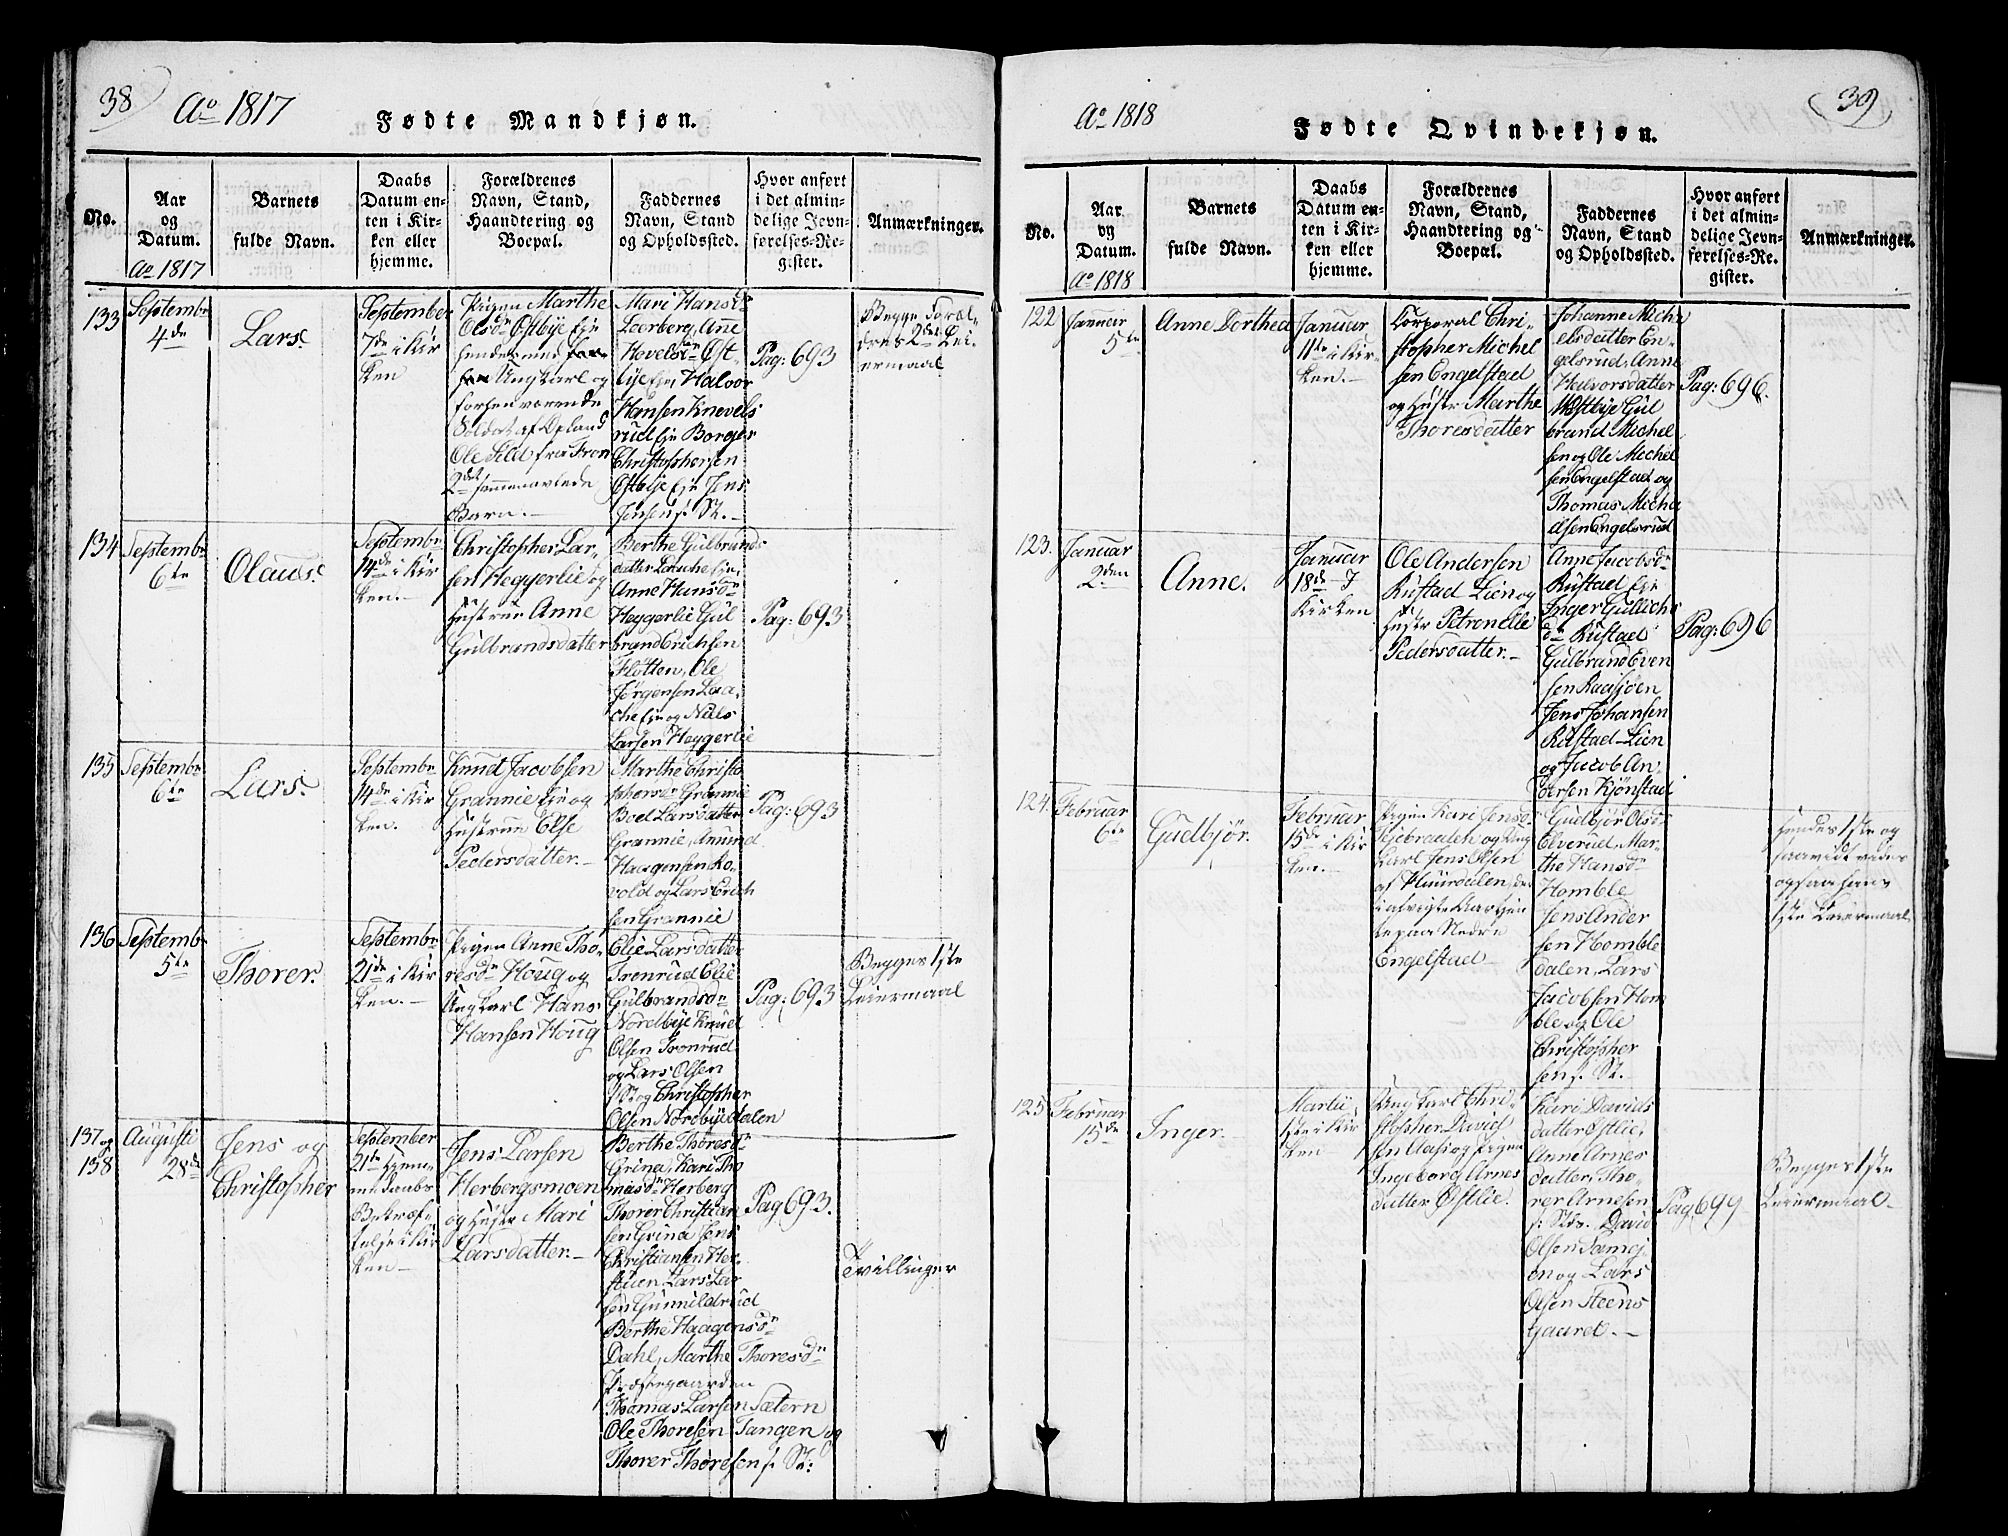 38
Ao 1817
Fødte Mandkjøn.
No.
Aar
og
Datum.
Ao 1817
Barnets
fulde Navn.
Daabs
Datum en-
ten i Kir-
ken eller
hjemme.
Forældrenes
Navn, Stand,
Haandtering og
Boepæl.
Faddernes
Navn, Stand
og Opholdssted.
Hvor anført
i det almin-
delige Jevn-
førelses-Re-
gister.
Anmærkninger.
133
Septembr
4de
Lars.
September
7de i Kir
ken
Pigen Marthe
Olsdr Østbye Eje
hendes med
Ungkarl og
forhenværende
Soldat af Opland
Ole Sild fra Fron
2det sammenavlede
Barn.
Mari Hansdr
Loerberg, Anne
Hovelsdr Øst
bye Eje, Halvor
Hansen Knevels
rud Eje Borger
Christophersen
Østbye Eje Jens
Jensen f. St.
Pag: 693
Begge Foræl-
dres 2det Lei-
ermaal
134
Septembr
6te
Olaus.
Septembr
14de i Kir
ken.
Christopher Lar-
sen Heggerlie og
Hustrue Anne
Gulbrandsdatter
Berthe Gulbrands
datter Laache Eje,
Anne Hansdr
Heggerlie Gul
brand Erichsen
Flotten, Ole
Jørgensen Laa-
che Eje og Niels
Larsen Heggerlie
Pag: 693
135
Septembr
6te
Lars.
Septembr
14de i Kir
ken.
Knud Jacobsen
Grannie Eje og
Hustrue Else
Pedersdatter.
Marthe Christo
phersdr Grannie
Boel Larsdatter
Grannie, Amund
Haagensen Ro-
vold og Lars Erich
sen Grannie
Pag: 693
136
Septembr
5te
Thorer.
Septembr
21de i Kir
ken.
Pigen Anne Tho-
resdr Houg og
Ungkarl Hans
Hansen Houg
Elie Larsdatter
Tronrud Elie
Gulbrandsdr
Nordbye Knud
Olsen Tronrud
og Lars Olsen
f St og Christopher
Olsen Nordbye dalen
Pag: 693
Begges 1ste
Leiermaal
137 og
138
Augusti
28de
Jens og
Christopher
September
21de Hjem-
medaabs
Bekræf-
telse i Kir
ken
Jens Larsen
Herbergsmoen
og Hustr Mari
Larsdatter.
Berthe Thoresdr
Grina, Kari Tho
masdr Herberg
Thorer Christian
sen Grina Jens
Christiansen Her-
stuen Lars Lar
sen Gunnildrud
Berthe Haagensdr
Dahl, Marthe Thoresdr
Præstegaarden
Thomas Larsen Sætern
Ole Thoresen Tangen og
Thorer Thoresen f. St:
Pag 693.
Tvillinger
39
Ao 1818
Fødte Qvindekjøn.
No.
Aar
og
Datum.
Ao 1818
Barnets
fulde Navn.
Daabs
Datum en-
ten i Kir-
ken eller
hjemme.
Forældrenes
Navn, Stand,
Haandtering og
Boepæl.
Faddernes
Navn, Stand
og Opholdssted.
Hvor anført
i det almin-
delige Jevn-
førelses-Re-
gister.
Anmærkninger.
122
Januar
5te
Anne Dorthea
Januar
11te i Kir-
ken.
Corporal Chri-
stopher Michel
sen Engelstad
og Hustr Marthe
Thoresdatter
Johanne Micha
elsdatter En-
gelsrud, Anne
Halvorsdatter
Westbye Gul
brand Michel
sen og Ole Michel
sen Engelstad og
Thomas Micha
elsen Engelsrud
Pag: 696.
123.
Januar
2den
Anne.
Januar
18de I
Kirken
Ole Andersen
Rustad Lien og
Hustr Petronelle
Pedersdatter.
Anne Jacobsdr
Rustad Eje
Inger Gullichs
dr Rustad
Gulbrand Even
sen Raasjøen
Jens Johansen
Rustad Lien
og Jacob An-
dersen Kjönstad
Pag: 696
124.
Februar
6te
Gudbjör.
Februar
15de i Kir
ken.
Pigen Kari Jensdr
og Ung
karl Jens Olsen
af
i afvigte Aar tjen
te paa Nedre
Engelstad
Gudbjör Olsdr
Elverud, Mar-
the Hansdr
Homble
Jens Ander
sen Homble
dalen, Lars
Jacobsen Hom
ble og Ole
Christopher
sen f. St.
Hendes 1ste og
saavidt vides
ogsaa hans
1ste Leiermaal
125
Februar
15de
Inger.
Martii
1ste i Kir
ken
Ungkarl Chri-
stopher David
sen Aasi og Pigen
Ingeborg Arnes
datter Østlie.
Kari Davids
datter Østlie,
Anne Arnes
datter, Tho-
rer Arnesen
f. Stds. David
Olsen Samej-
en og Lars
Olsen Steens
gaaret.
Pag 699
Begges 1ste
Leiermaal